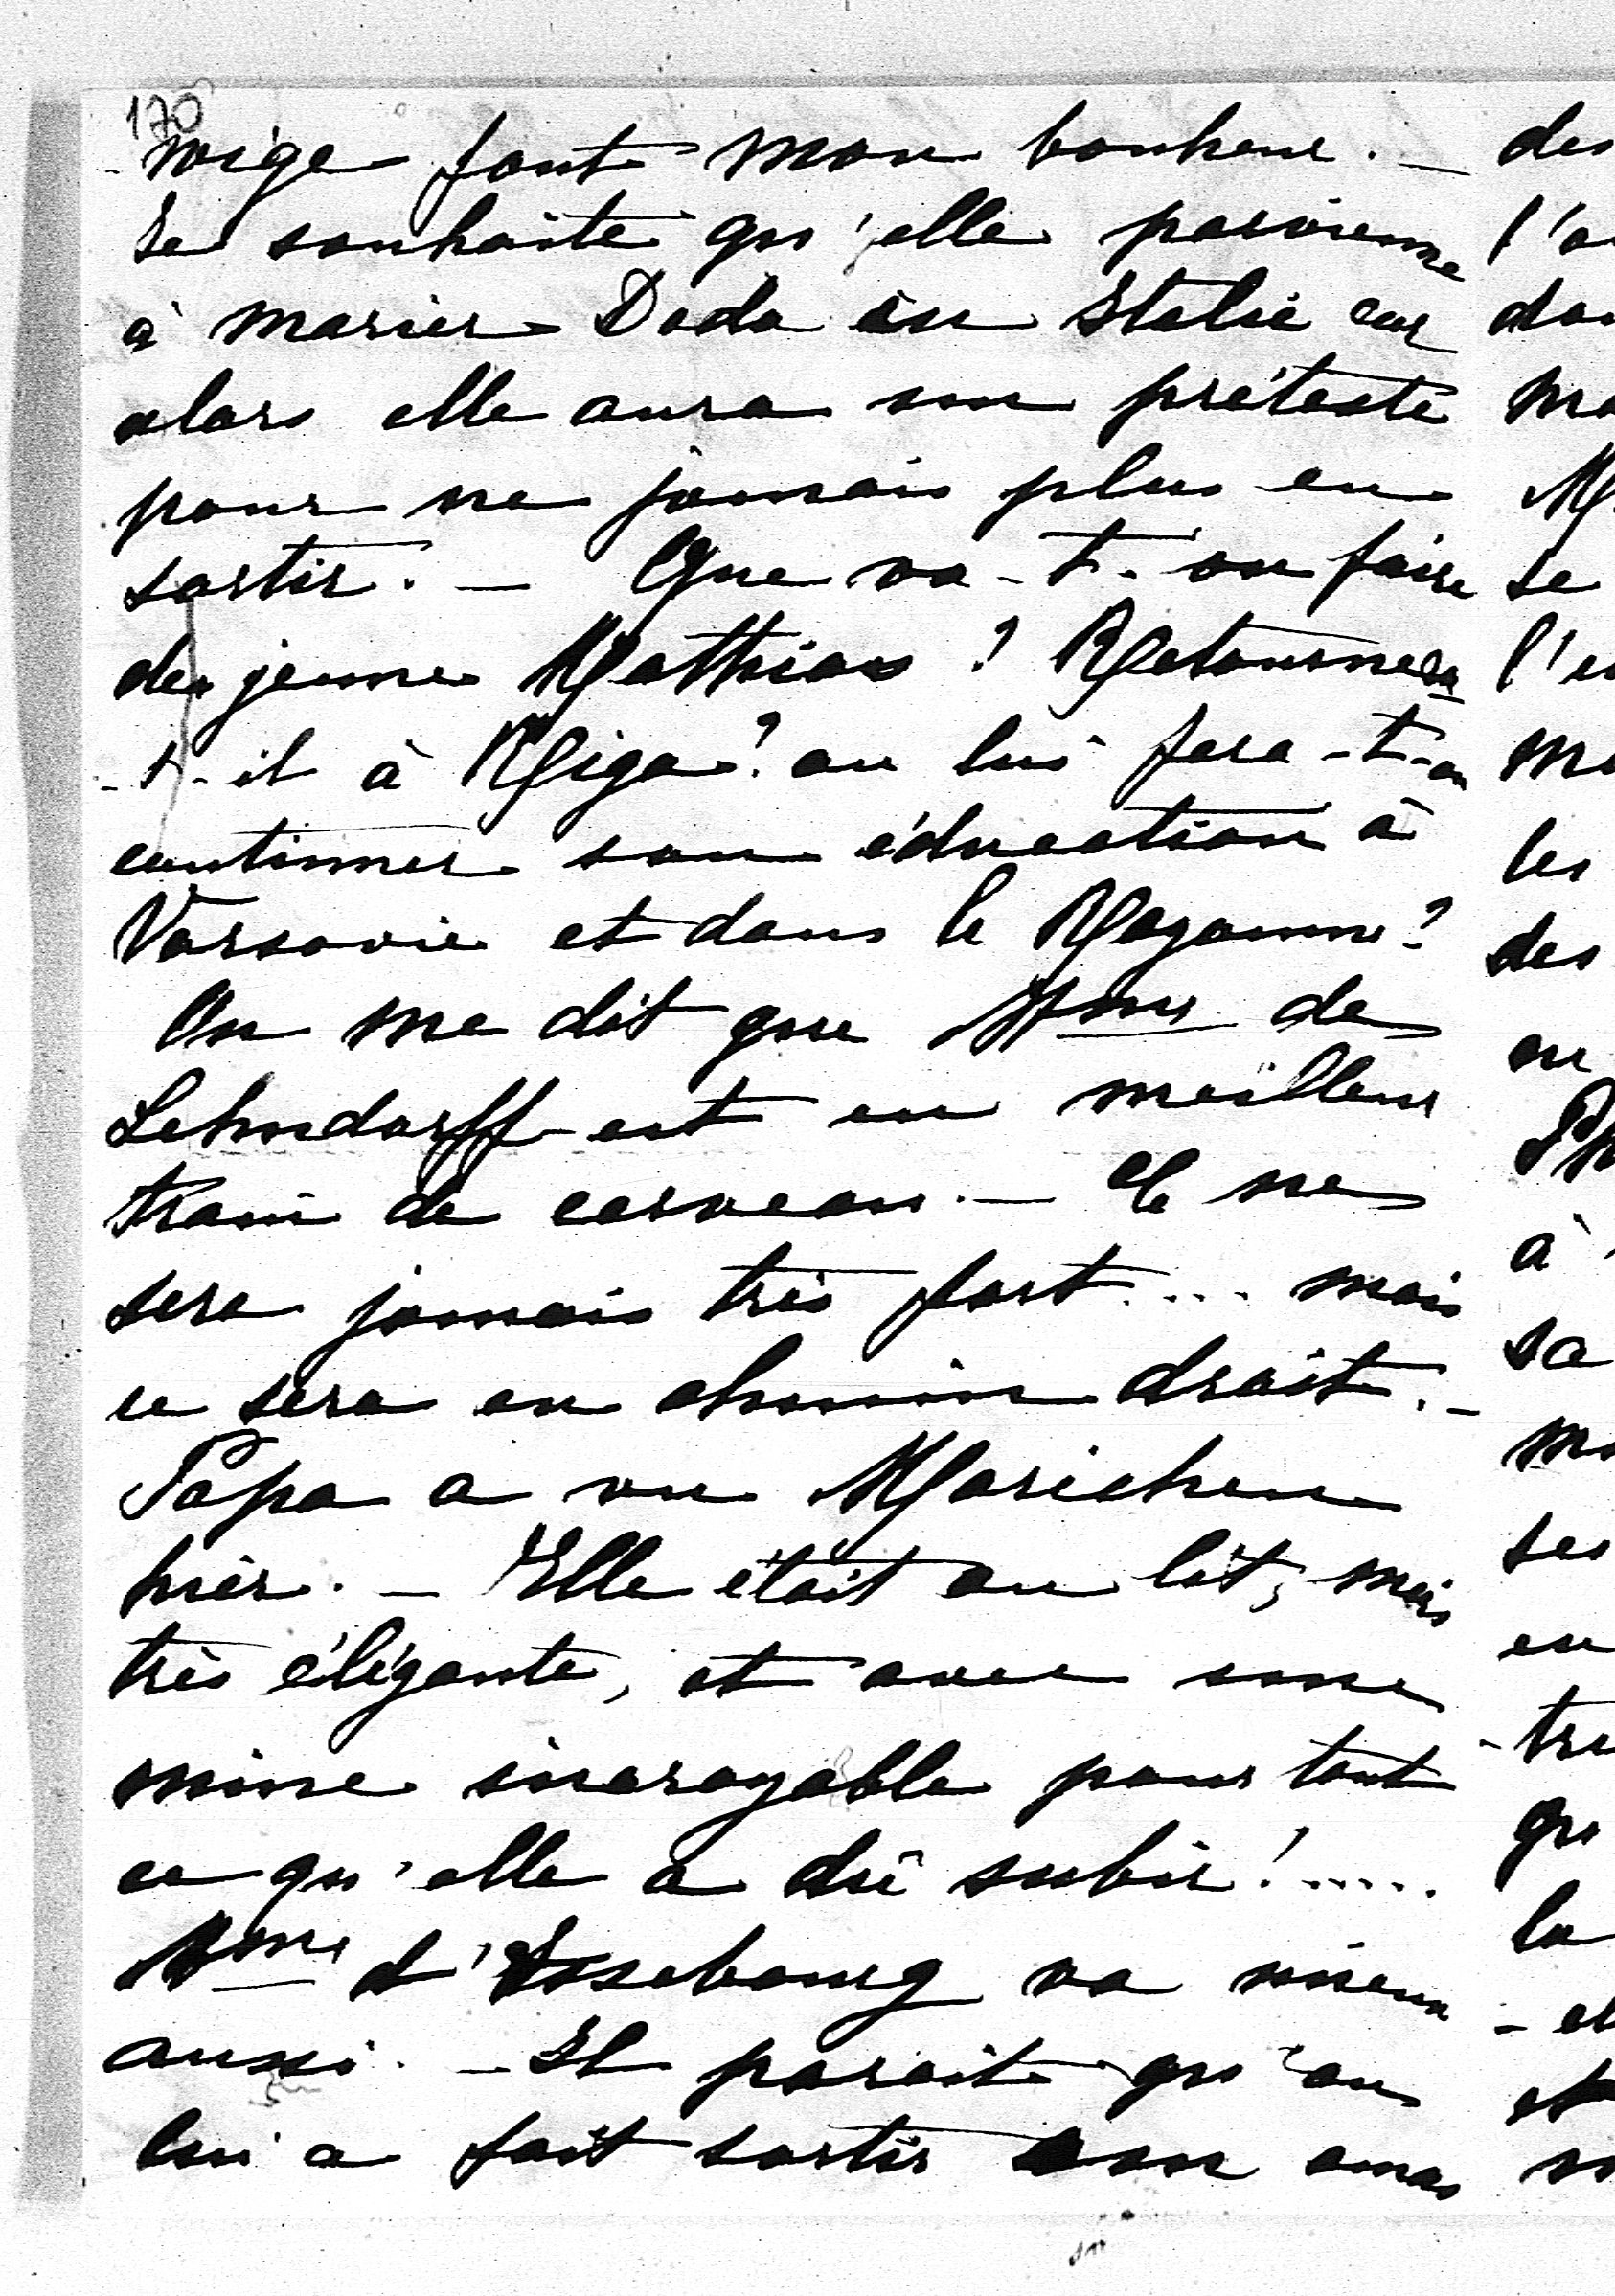 170
-wige font mon bonheur. —
Je souhaite qu'elle parvienne
à marier Doda en Italie car
alors elle aura un prétexte
pour ne jamais plus en
sortir. — Que va-t-on faire
du jeune Matthias ? Retournera
-t-il à Riga ? ou lui fera-t-on
continuer son éducation à
Varsovie et dans le Royaume ?
On me dit que Mme de
Lehndorff est en meilleur
train de cerveau. — Ce ne
sera jamais très fort.... mais
ce sera en chemin droit. —
Papa a vu Mariechen
hier. — Elle était au lit, mais
très élégante, et avec une
mine incroyable pour tout
ce qu'elle a dû subir !.....
Mme d'Assebourg va mieux
aussi. — Il parait qu'on
lui a fait sortir un amas
des
l'a
da
ma
M
se
l'e
ma
les
des
ou
à
sa
mo
ses
en
-tre
qu
la
- el
et